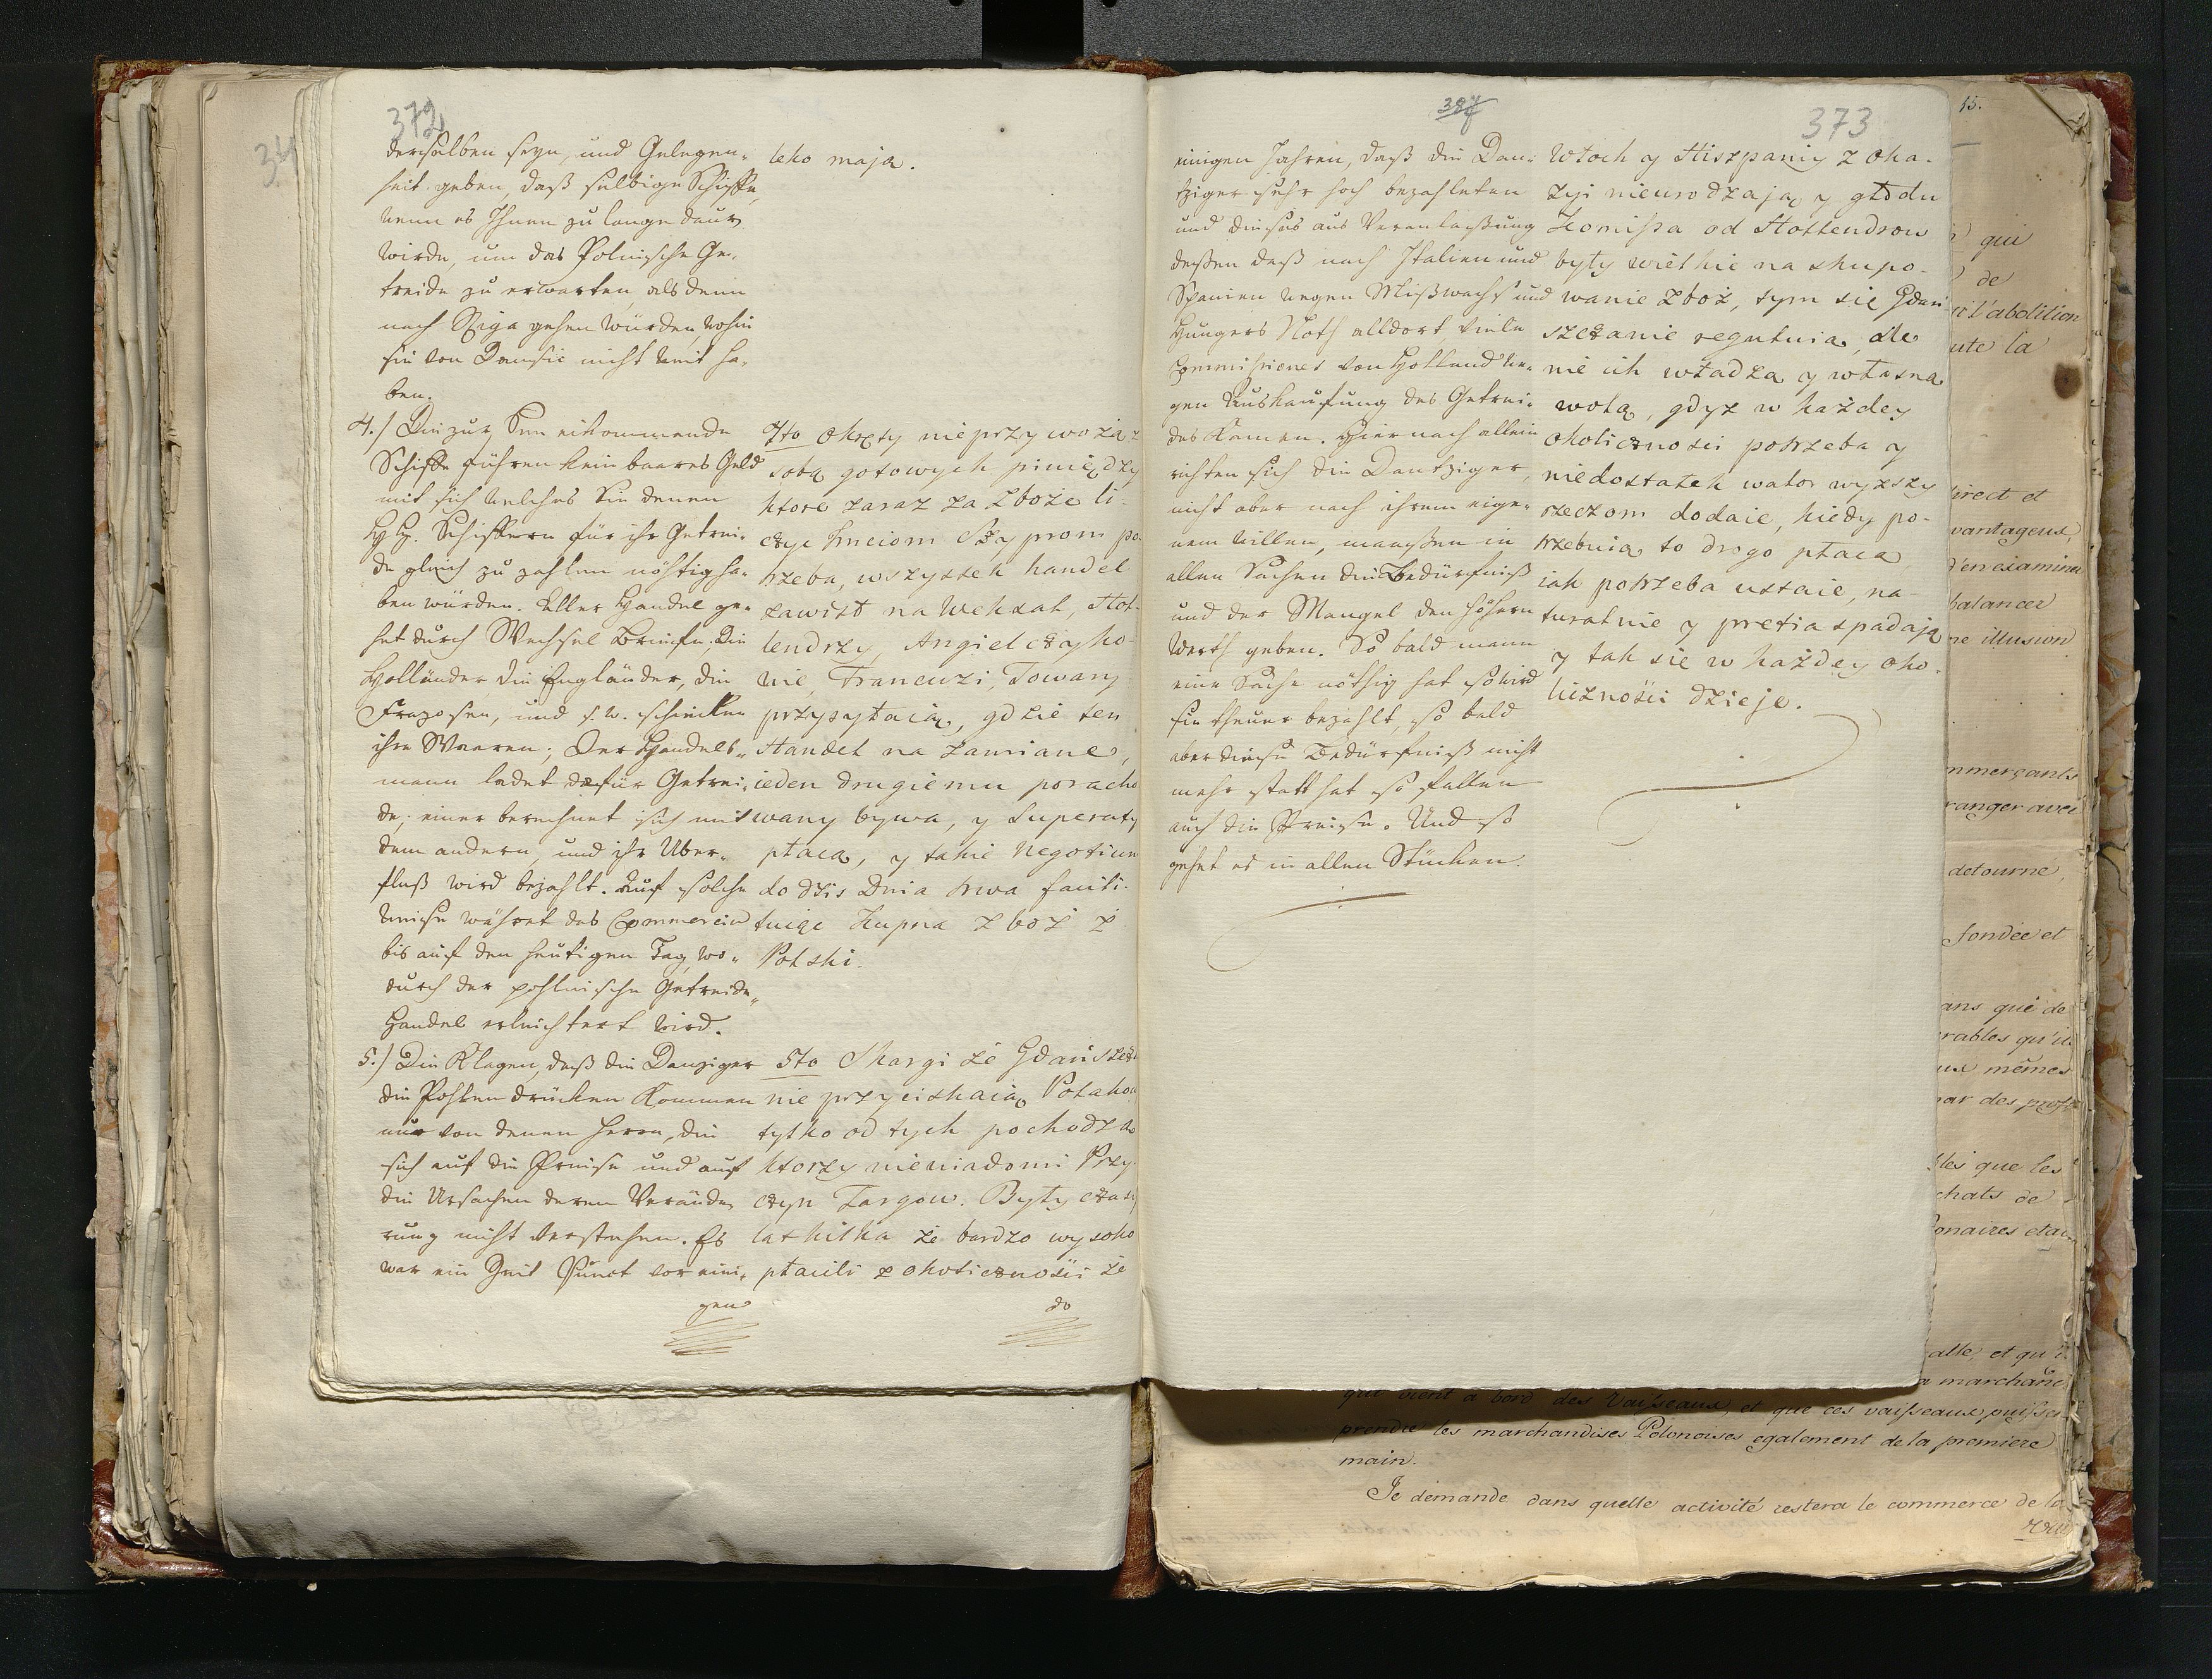 372
derselben seyn, und Gelegen-
heit geben, daß selbige Schiffe,
wenn es Ihnen zu lange dauern
wirde, um das Polnische Ge-
treide zu erwarten, als denn
nach Riga gehen würden, wohin
sie von Dansic nicht weit ha-
ben.
4.) Die zur See eikommende
Schiffe führen kein baares Geld
mit sich welches Sie denen
HH. Schiffern für ihr Getrei-
de gleich zu zahlen nöhtig ha-
ben würden. Aller Handel ge-
het durch Wechsel Briefe; Die
Holländer die Engländer, die
Frazosen, und s. w. schicken
ihre Waaren; Der Handels-
mann ladet dafür Getrei-
de; einer berechnet sich mit
dem andern, und ihr Uber-
fluß wird bezahlt. Auf solche
Weise währet das Commercium
bis auf den heutigen Tag, wo-
durch der pohlnische Getreide-
Handel erleichtert wird.
5.) Die Klagen, daß die Danziger
die Pohlen drücken kommen
nur von denen herrn, die
sich auf die Preise und auf
die Ursachen deren Verände-
rung nicht verstehen. Es
war ein Zeit Punct vor eini-
gen
leko maja.
4to Okręty nieprzywożą z
sobą gotowych piniędzy
ktore zaraz za zboże li-
czyc kmciom Szyprom po-
trzeba, wszystek handel
zawisł na Weksal, Hol-
lendrzy, Angielczyko-
wie, Francuzi, Towary
przysyłaią, gdzie ten
Handel na zamiane,
ieden drugiemu poracho
wany bywa, y Superaty
płacą, y takie Negotium
do dzis Dnia trwa facili-
tuige Kupna zboż z
Polski.
5to Skargi że Gdańszcza
nie przyciskaią Polakow
tylko od tych pochodzą
ktorzy niewiadomi Przy-
czyn Targow. Były czasy
lat kilka że bardzo wysoko
płacili z okoliczności że
do
387
373
einigen Jahren, daß die Dan-
tziger sehr hoch bezahleten
und dieses aus Veranlaßung
deßen daß nach Italien und
Spanien wegen Mißwachs und
Hungers Noth alldort, viele
Commissiones von Holland we-
gen Auskaufung des Getrei-
des kamen. Hiernach allein
richten sich die Dantziger,
nicht aber nach ihrem eige-
nem Willen, maaßen in
allen Sachen die Bedürfniß
und der Mangel den höhern
Werth geben. So bald mann
eine Sache nöthig hat so wird
sie theuer bezahlt, so bald
aber diese Bedürfniß nicht
mehr statt hat so fallen
auch die Preise. Und so
gehet es in allen Stücken.
Włoch y Hiszpaniy z oka-
zyi nieurodzaja, y głodu
Komissa od Hollendrow
były wielkie na skupo-
wanie zboż, tym sie Gdań-
szczanie reguluia, ale
nie ich władzą y własną
wolą, gdyż w każdey
okoliczności potrzeba y
niedostatek walor wyzszy
rzeczom dodaie, kiedy po-
trzebuią to drogo płacą,
iak potrzeba ustaie, na-
turalnie y pretia spadaią
y tak sie w każdey oko-
liczności dzieje.
15.
qui
de
l'abolition
ute la
direct et
vantageux,
d'en examiner
balancer
illusion
mmerçants
ranger avec
detourne,
fondée et
ans que de
rables qu'il
ux mêmes
par des prof
les que les
chats de
onaires
alle, et qu'
a marchan
que vient à bord des Vaisseaux, et que ces vaisseaux puisse
prendre les marchandises Polonoises egalement de la premiere
main.
Je demande dans quelle activité restera le commerce de la